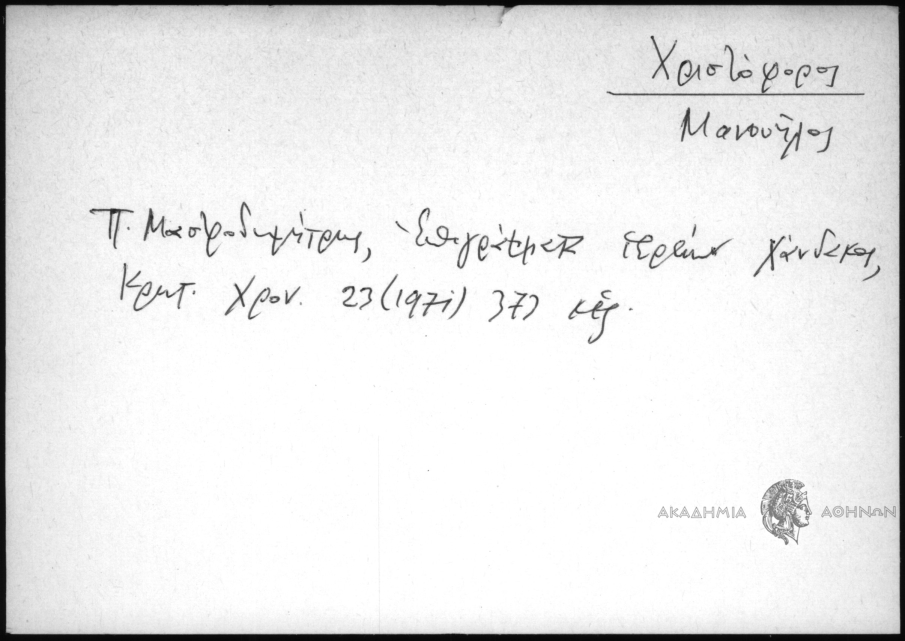 Χριστόφορος
Μανουῆλος
Π. Μαστροδημήτρης, Ἐπιγράμματα ἱερέων Χάνδακος,
Κρητ. Χρον. 23 (1971) 373 κἑξ.
ΑΚΑΔΗΜΙΑ ΑΘΗΝΩΝ